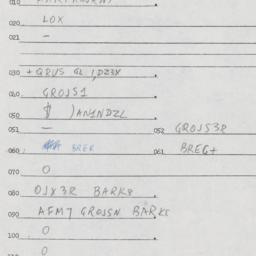 020 LOX
021 –
030 + QRUS GL ,DZ3X
040 GROJS1
050 $ )AN1NDZL
051 –
052 GROJS3R
060 BRER
061 BREG+
070 0
080 OJX3R BARK8
090 AFM7 GROJSN BARK8
100 0
110 0